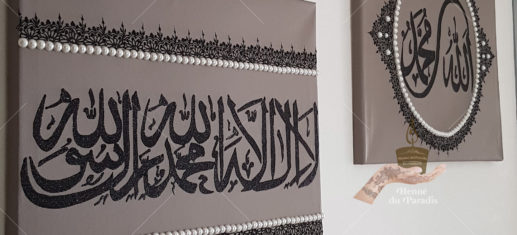 لا إله إلا الله محمد رسول الله
الله محمد
Henné
du Paradis